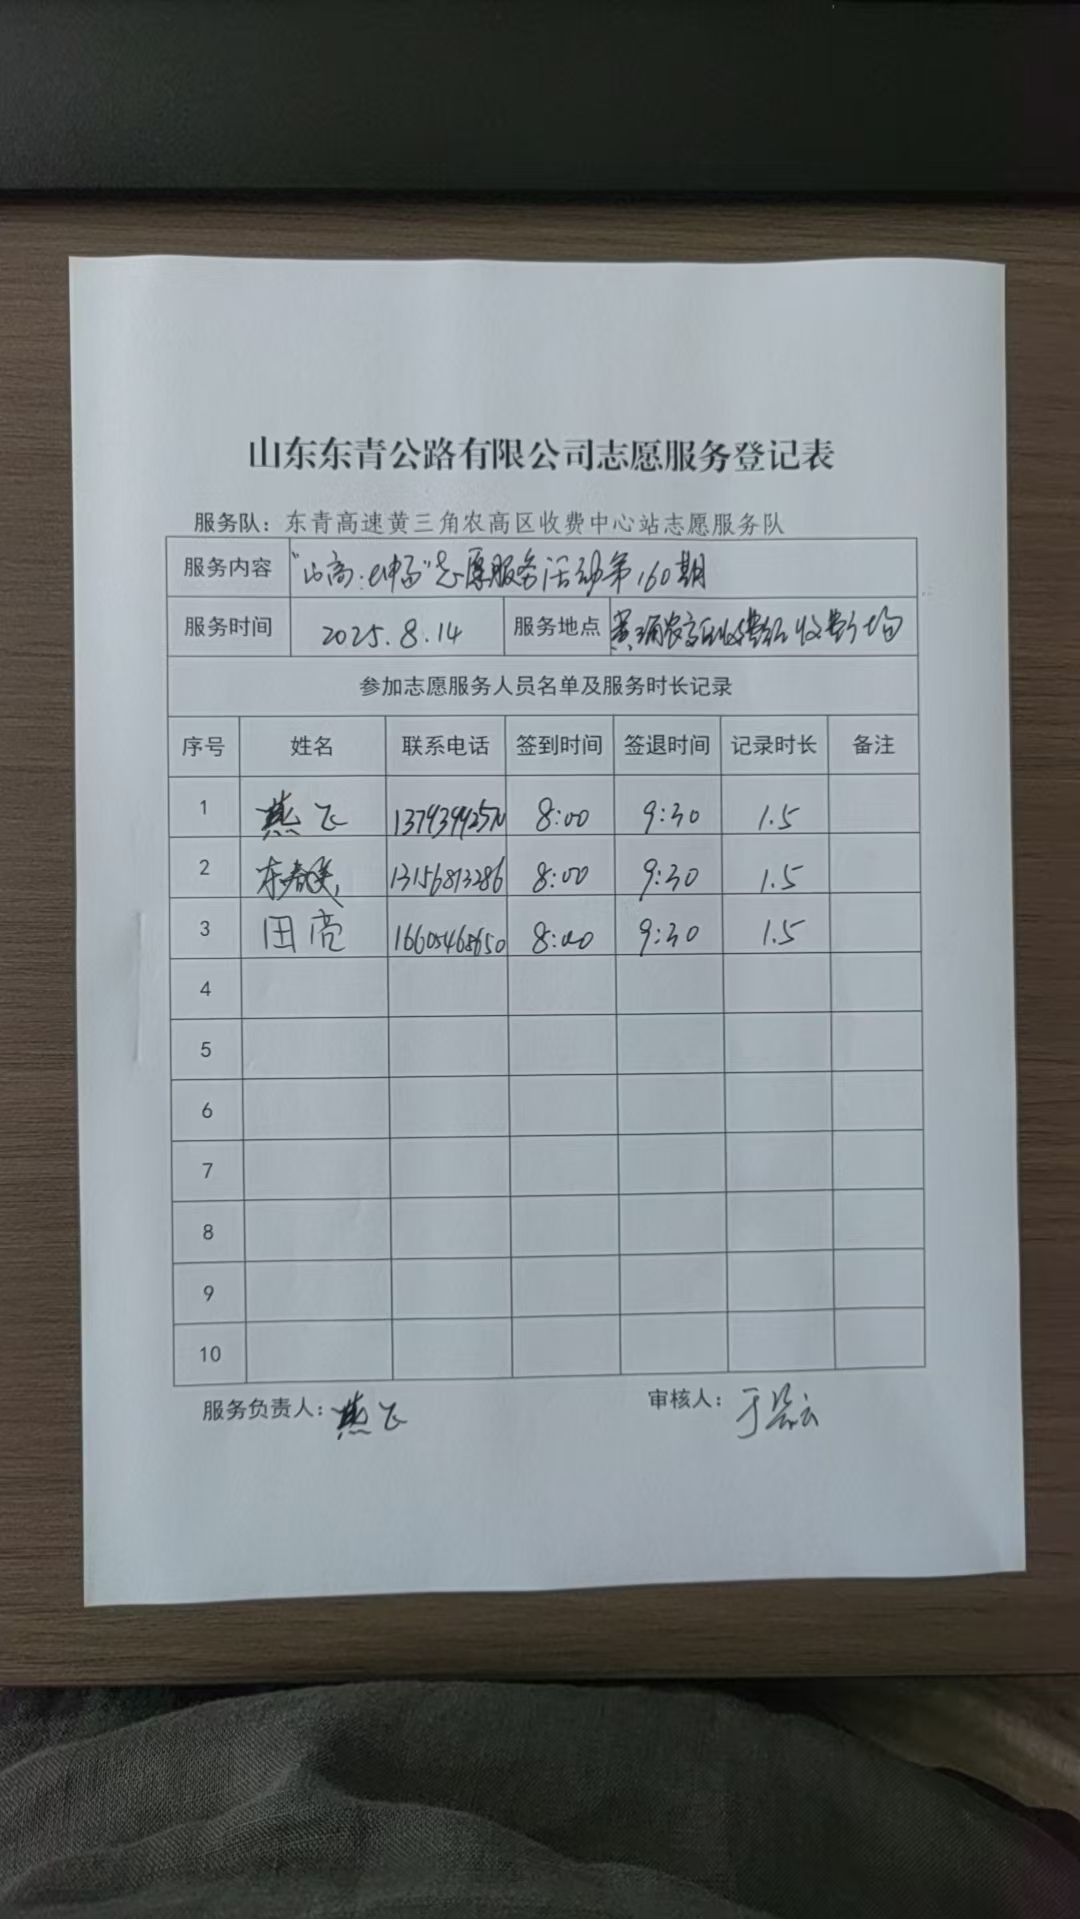 山东东青公路有限公司志愿服务登记表
服务队：东青高速黄三角农高区收费中心站志愿服务队
服务内容 "山高·e伸" 志愿服务活动第160期
服务时间 2025.8.14 服务地点 黄三角农高区收费站收费广场
参加志愿服务人员名单及服务时长记录
序号 姓名 联系电话 签到时间 签退时间 记录时长 备注
1 燕飞 8:00 9:30 1.5
2 13156813286 8:00 9:30 1.5
3 田亮 16605468650 8:00 9:30 1.5
4
5
6
7
8
9
10
服务负责人：燕飞 审核人：于